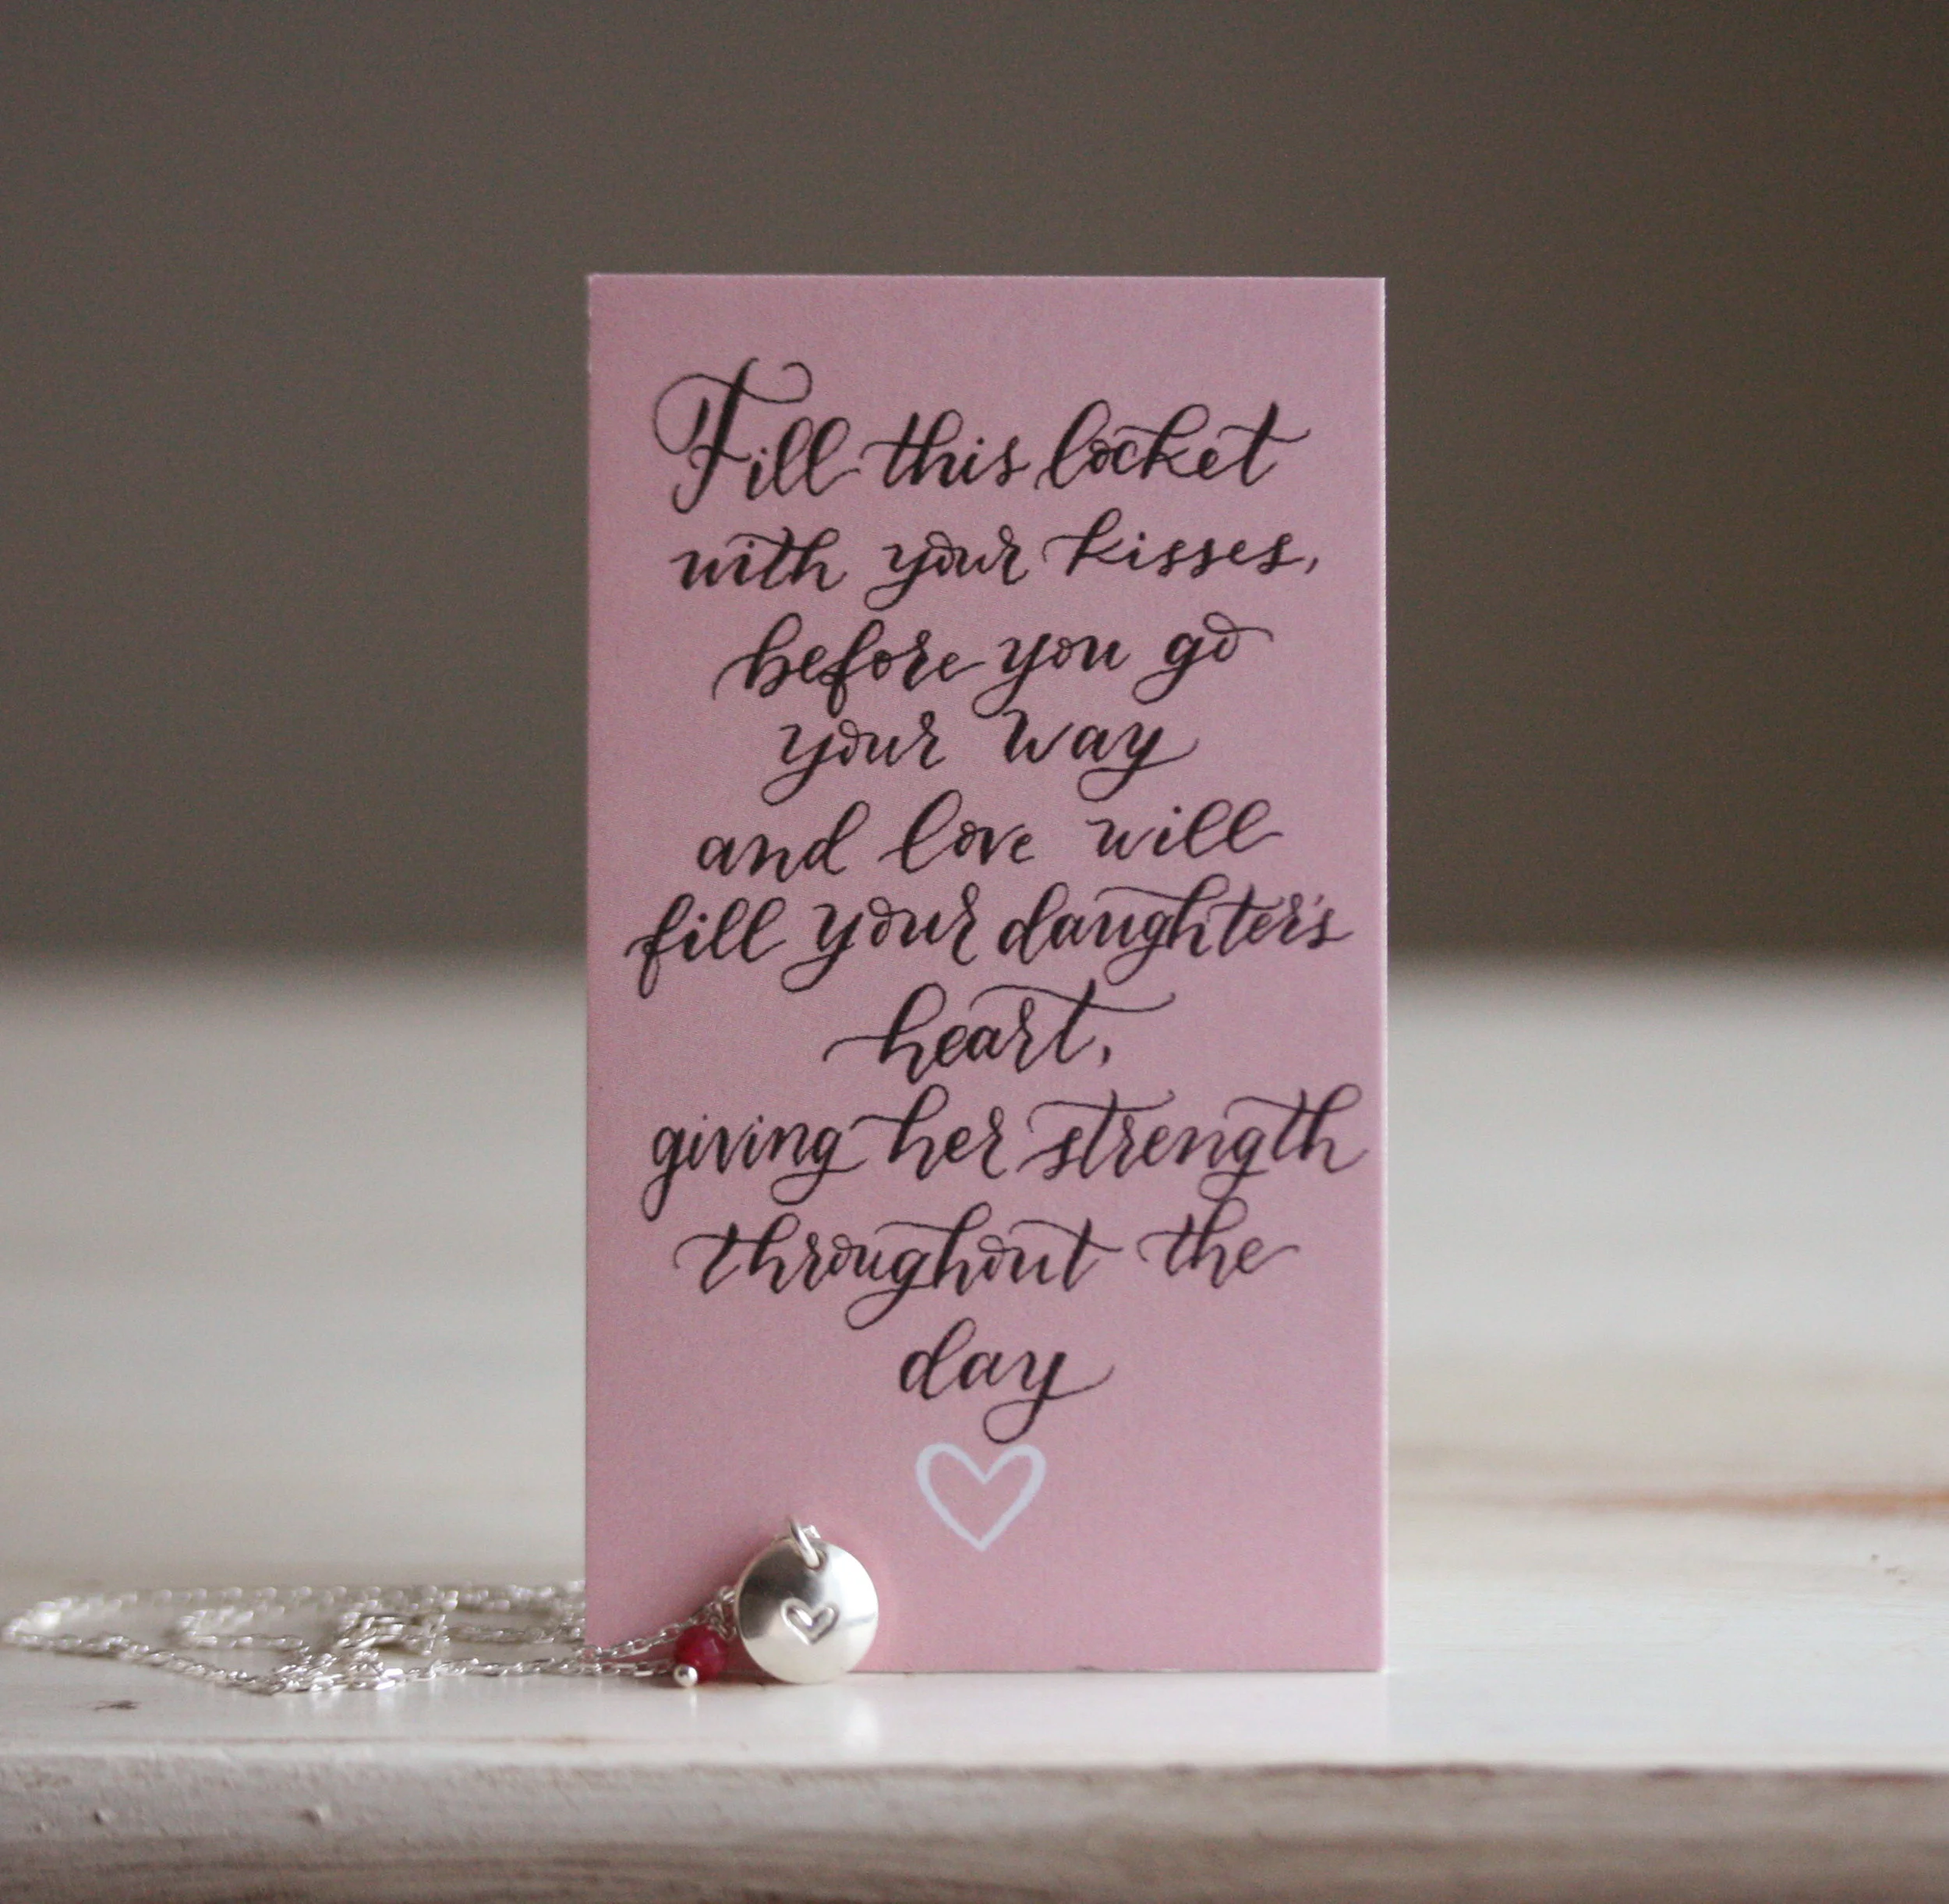 Fill this locket
with your kisses,
before you go
your way
and love will
fill your daughter's
heart,
giving her strength
throughout the
day